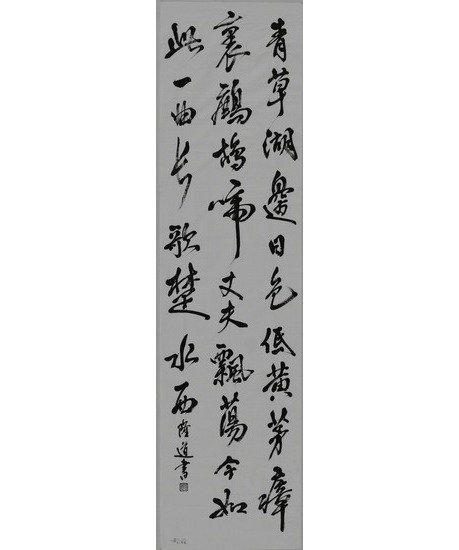 青草湖邊日色低黃茅瘴
裏鷓鴣啼丈夫飄蕩今如
此一曲長歌楚水西
隆道書